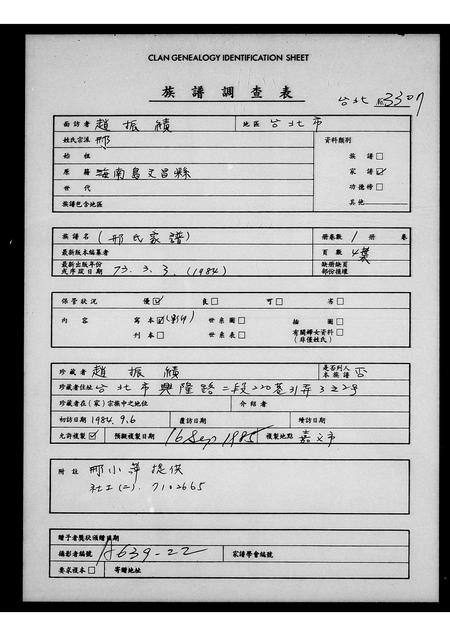 CLAN GENEALOGY IDENTIFICATION SHEET
族譜調查表
台北 3307
面訪者 趙振績 地區 台北市
姓氏宗派 邢 資料類別
始祖 族譜□
原籍 海南島文昌縣 家譜☑
世代 功德榜□
族譜包含地區 其他
族譜名 (邢氏家譜) 冊卷數 1 冊 卷
最新版本編纂者 頁數 4葉
最新出版年份或序跋日期 73.3.3.(1984) 缺冊缺頁部份損壞
保管狀況 優☑ 良□ 可□ 劣□
內容 寫本☑(影印) 世系圖□ 插圖□
刊本□ 世系表□ 有關婦女資料(非僅姓氏)□
珍藏者 趙振績 是否列入本族譜 否
珍藏者住址 台北市興隆路二段220巷31弄3之2号
珍藏者在(家)宗族中之地位 介紹者
初訪日期 1984.9.6 覆訪日期 續訪日期
允許複製☑ 預擬複製日期 16 Sep 1985 複製地點 嘉义市
附註 邢小萍提供
社工(二). 7102665
贈予者獎狀頒贈日期
攝影者編號 A639-22 家譜學會編號
要求複本□ 寄贈地址